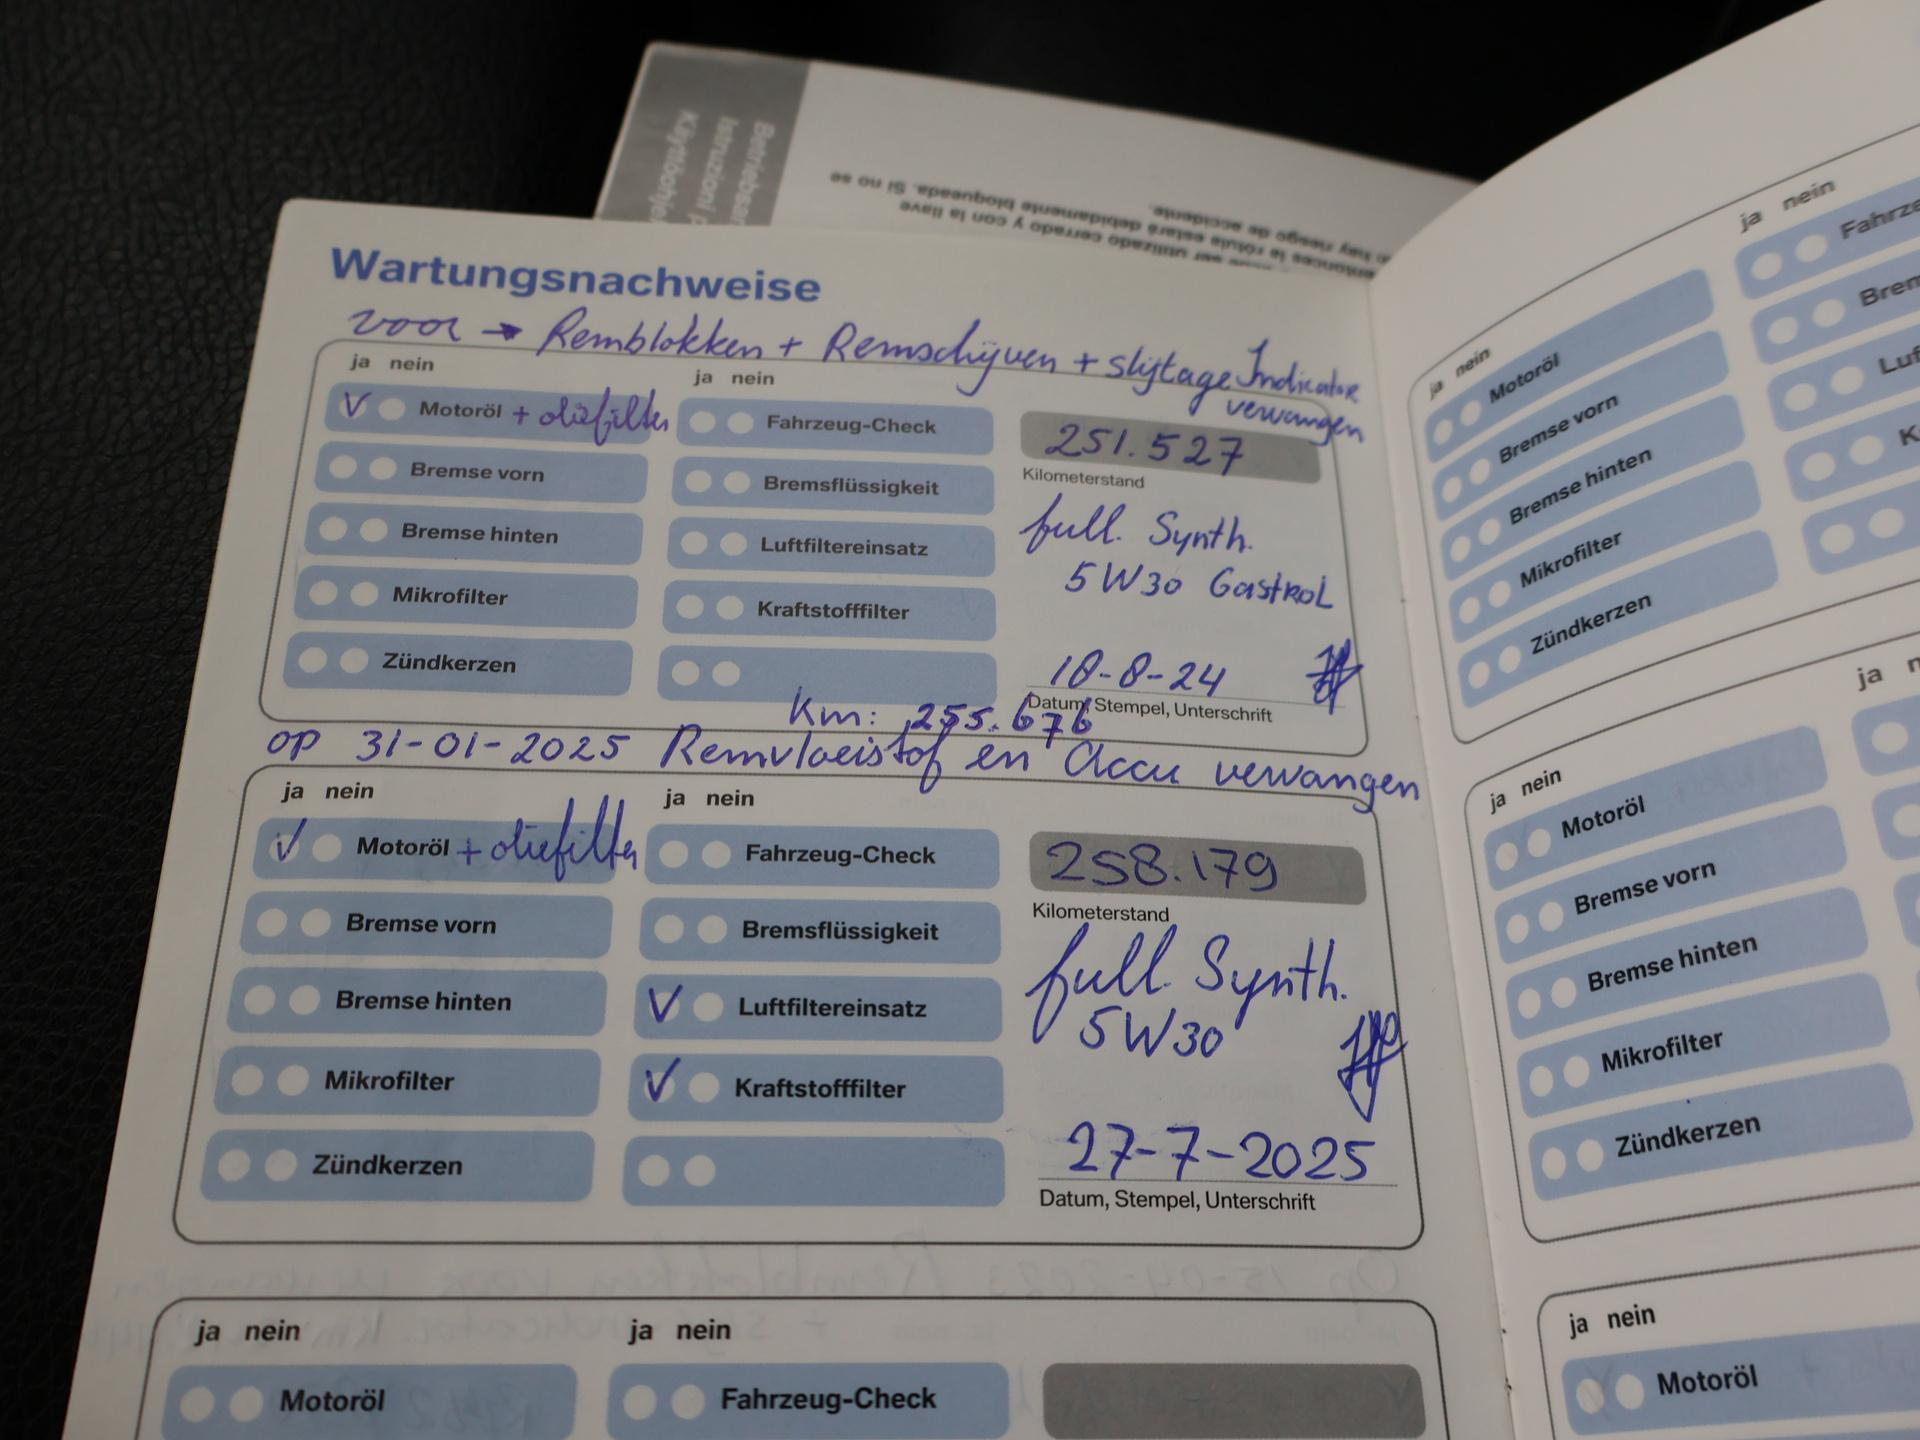 Wartungsnachweise
voor → Remblokken + Remschijven + slijtage Indicator
vervangen
ja nein
ja nein
Motoröl + oliefilter
Fahrzeug-Check
251.527
Bremse vorn
Bremsflüssigkeit
Kilometerstand
Bremse hinten
Luftfiltereinsatz
full. Synth.
Mikrofilter
Kraftstofffilter
5W30 Castrol
Zündkerzen
18-8-24
Datum, Stempel, Unterschrift
Km: 255.676
op 31-01-2025 Remvloeistof en Accu vervangen
ja nein
ja nein
Motoröl + oliefilter
Fahrzeug-Check
258.179
Bremse vorn
Bremsflüssigkeit
Kilometerstand
Bremse hinten
Luftfiltereinsatz
full. Synth.
5W30
Mikrofilter
Kraftstofffilter
Zündkerzen
27-7-2025
Datum, Stempel, Unterschrift
ja nein
ja nein
Motoröl
Fahrzeug-Check
ja nein
ja nein
Motoröl
Bremse vorn
Bremse hinten
Mikrofilter
Zündkerzen
ja nein
ja
Motoröl
Bremse vorn
Bremse hinten
Mikrofilter
Zündkerzen
ja nein
Motoröl
entonces la rótula estará debidamente bloqueada. Si no se
hay riesgo de accidente.